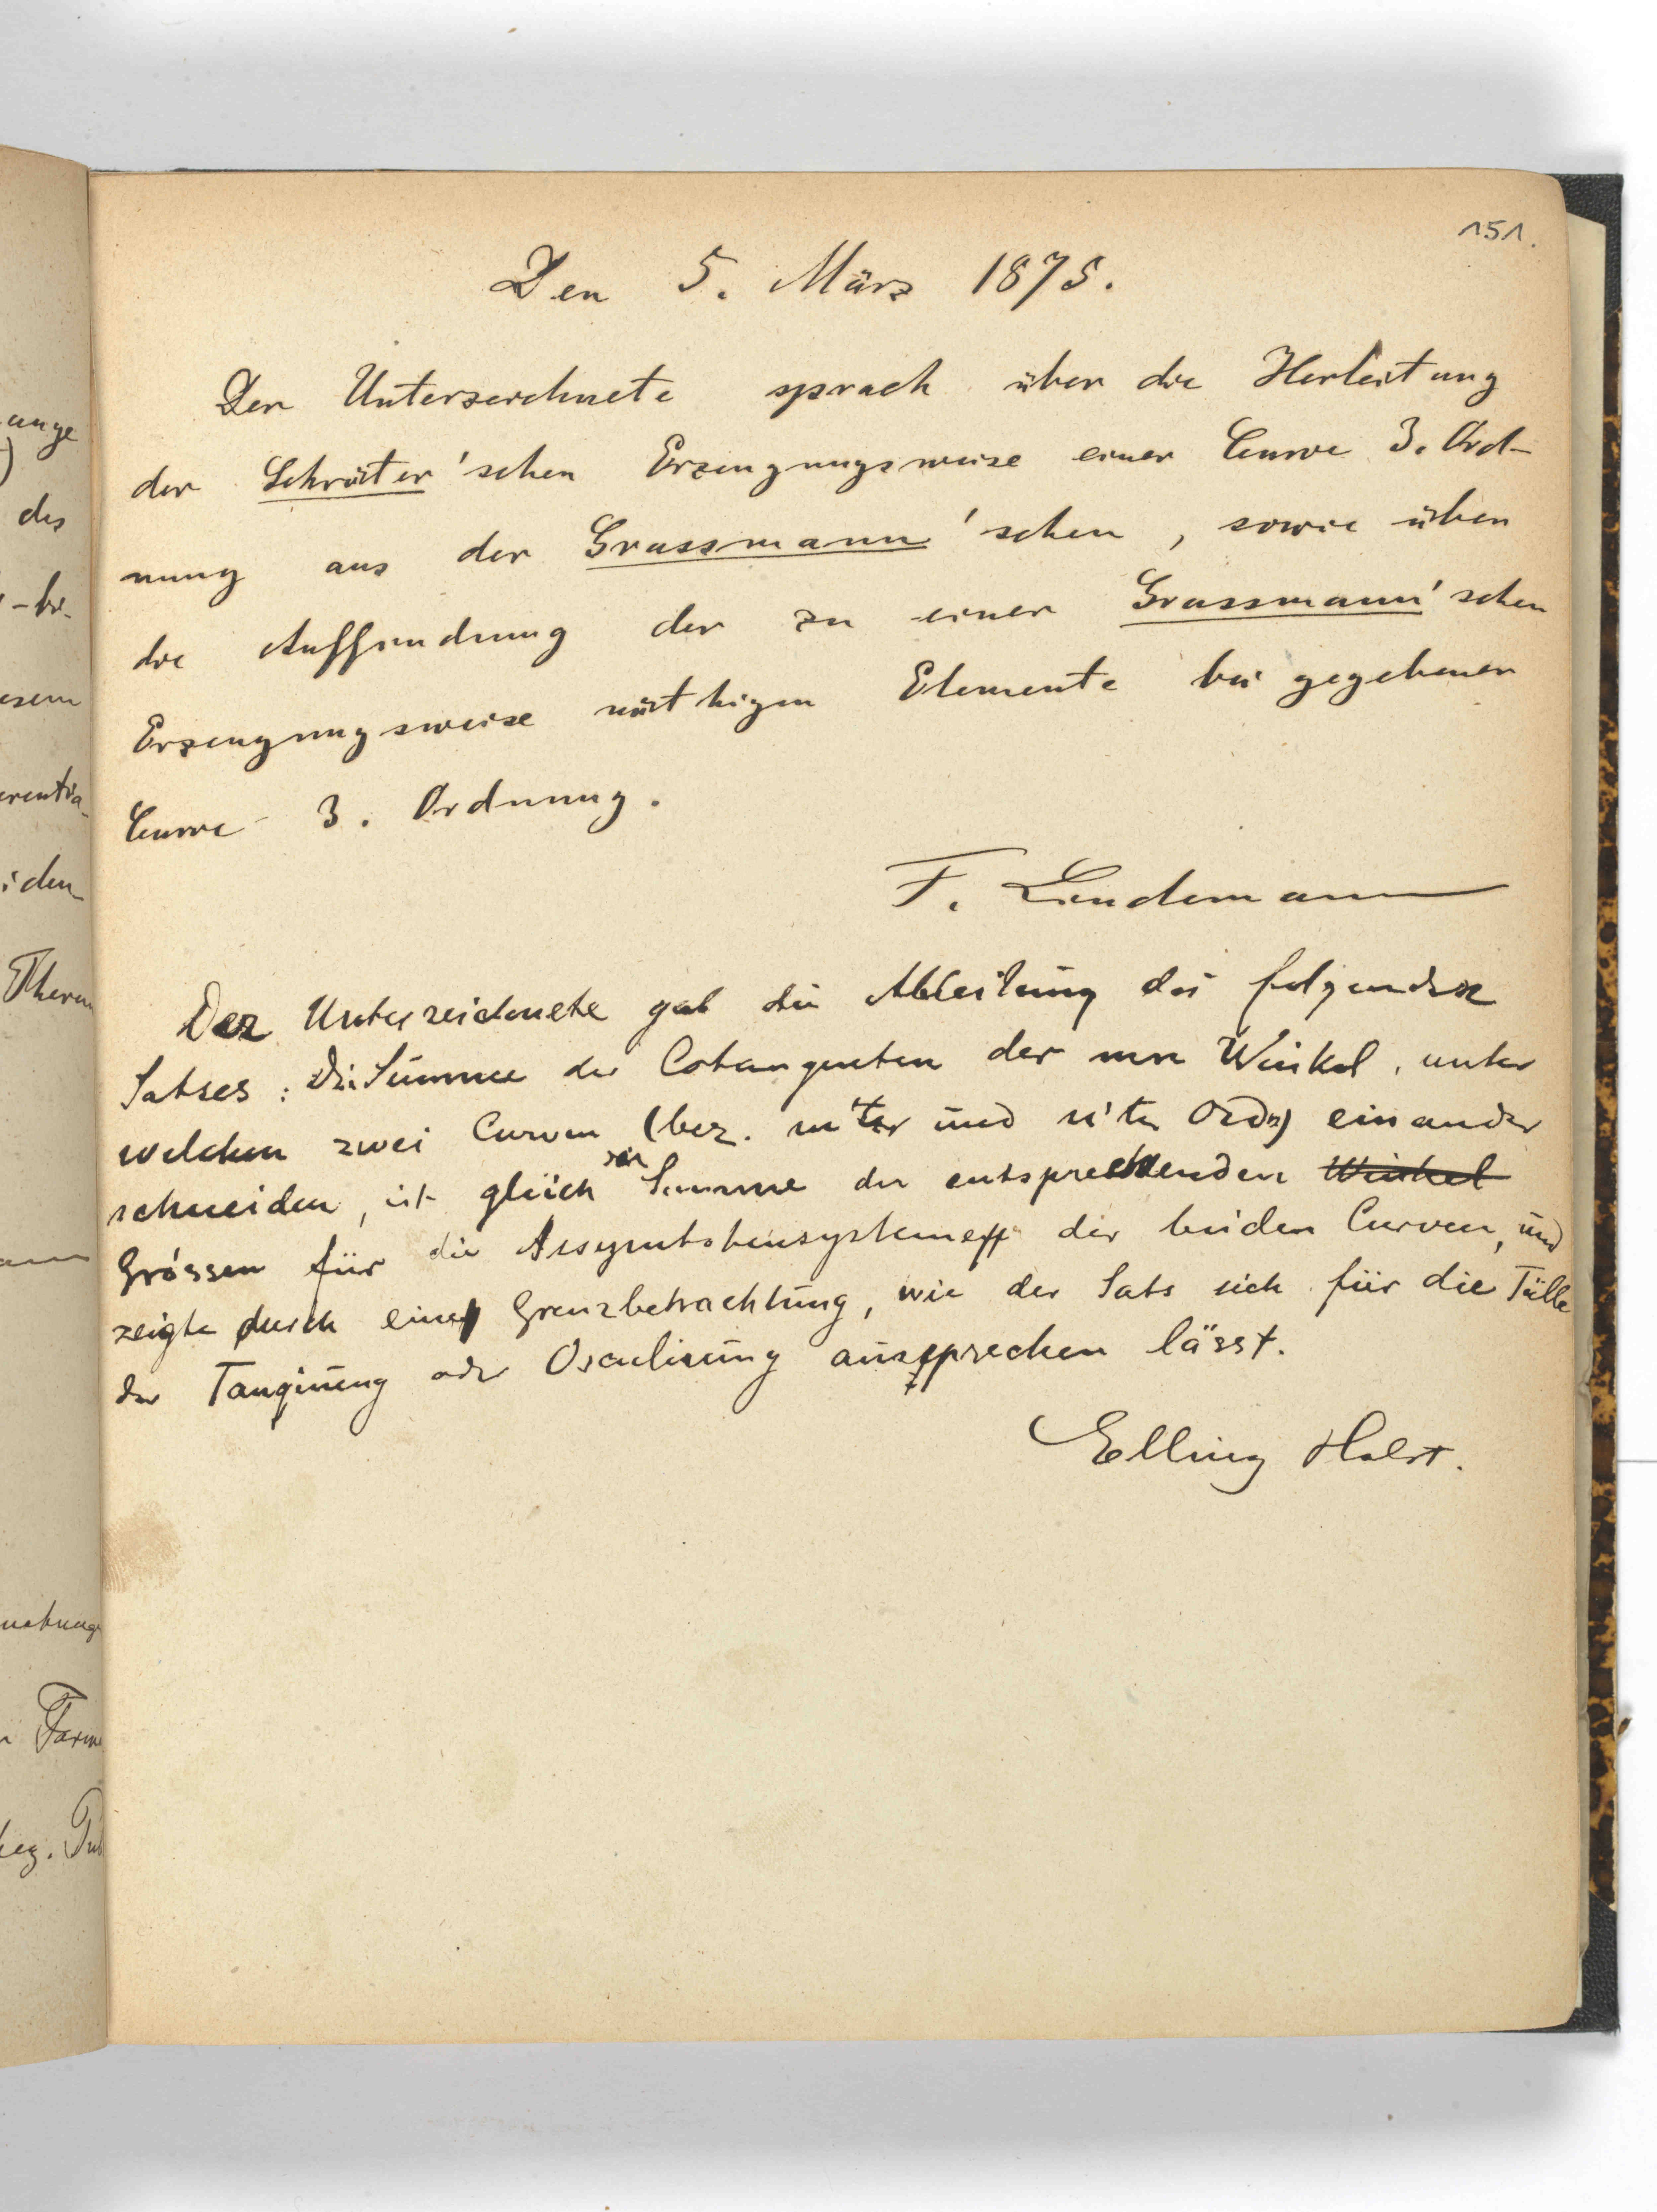 151.
Den 5. März 1875.
Der Unterzeichnete sprach über die Herleitung
der Schröter'schen Erzeugungsweise einer Curve 3. Ord-
nung aus der Grassmann'schen, sowie über
die Auffindung der zu einer Grassmann'schen
Erzeugungsweise nöthigen Elemente bei gegebener
Curve 3. Ordnung.
F. Lindemann
Der Unterzeichnete gab die Ableitung des folgenden
Satses: Die Summe der Cotangenten der mn Winkel, unter
welchen zwei Curven (bez. m'ter und n'ter Ordn) einander
schneiden, ist gleich der Summe der entsprechenden Winkel
Grössen für die Assymtotensysteme der beiden Curven, und
zeigte durch eine Grenzbetrachtung, wie der Sats sich für die Fälle
der Tangirung oder Osculirung aussprechen lässt.
Elling Holst.
ange
)
des
esem
iden
Theren